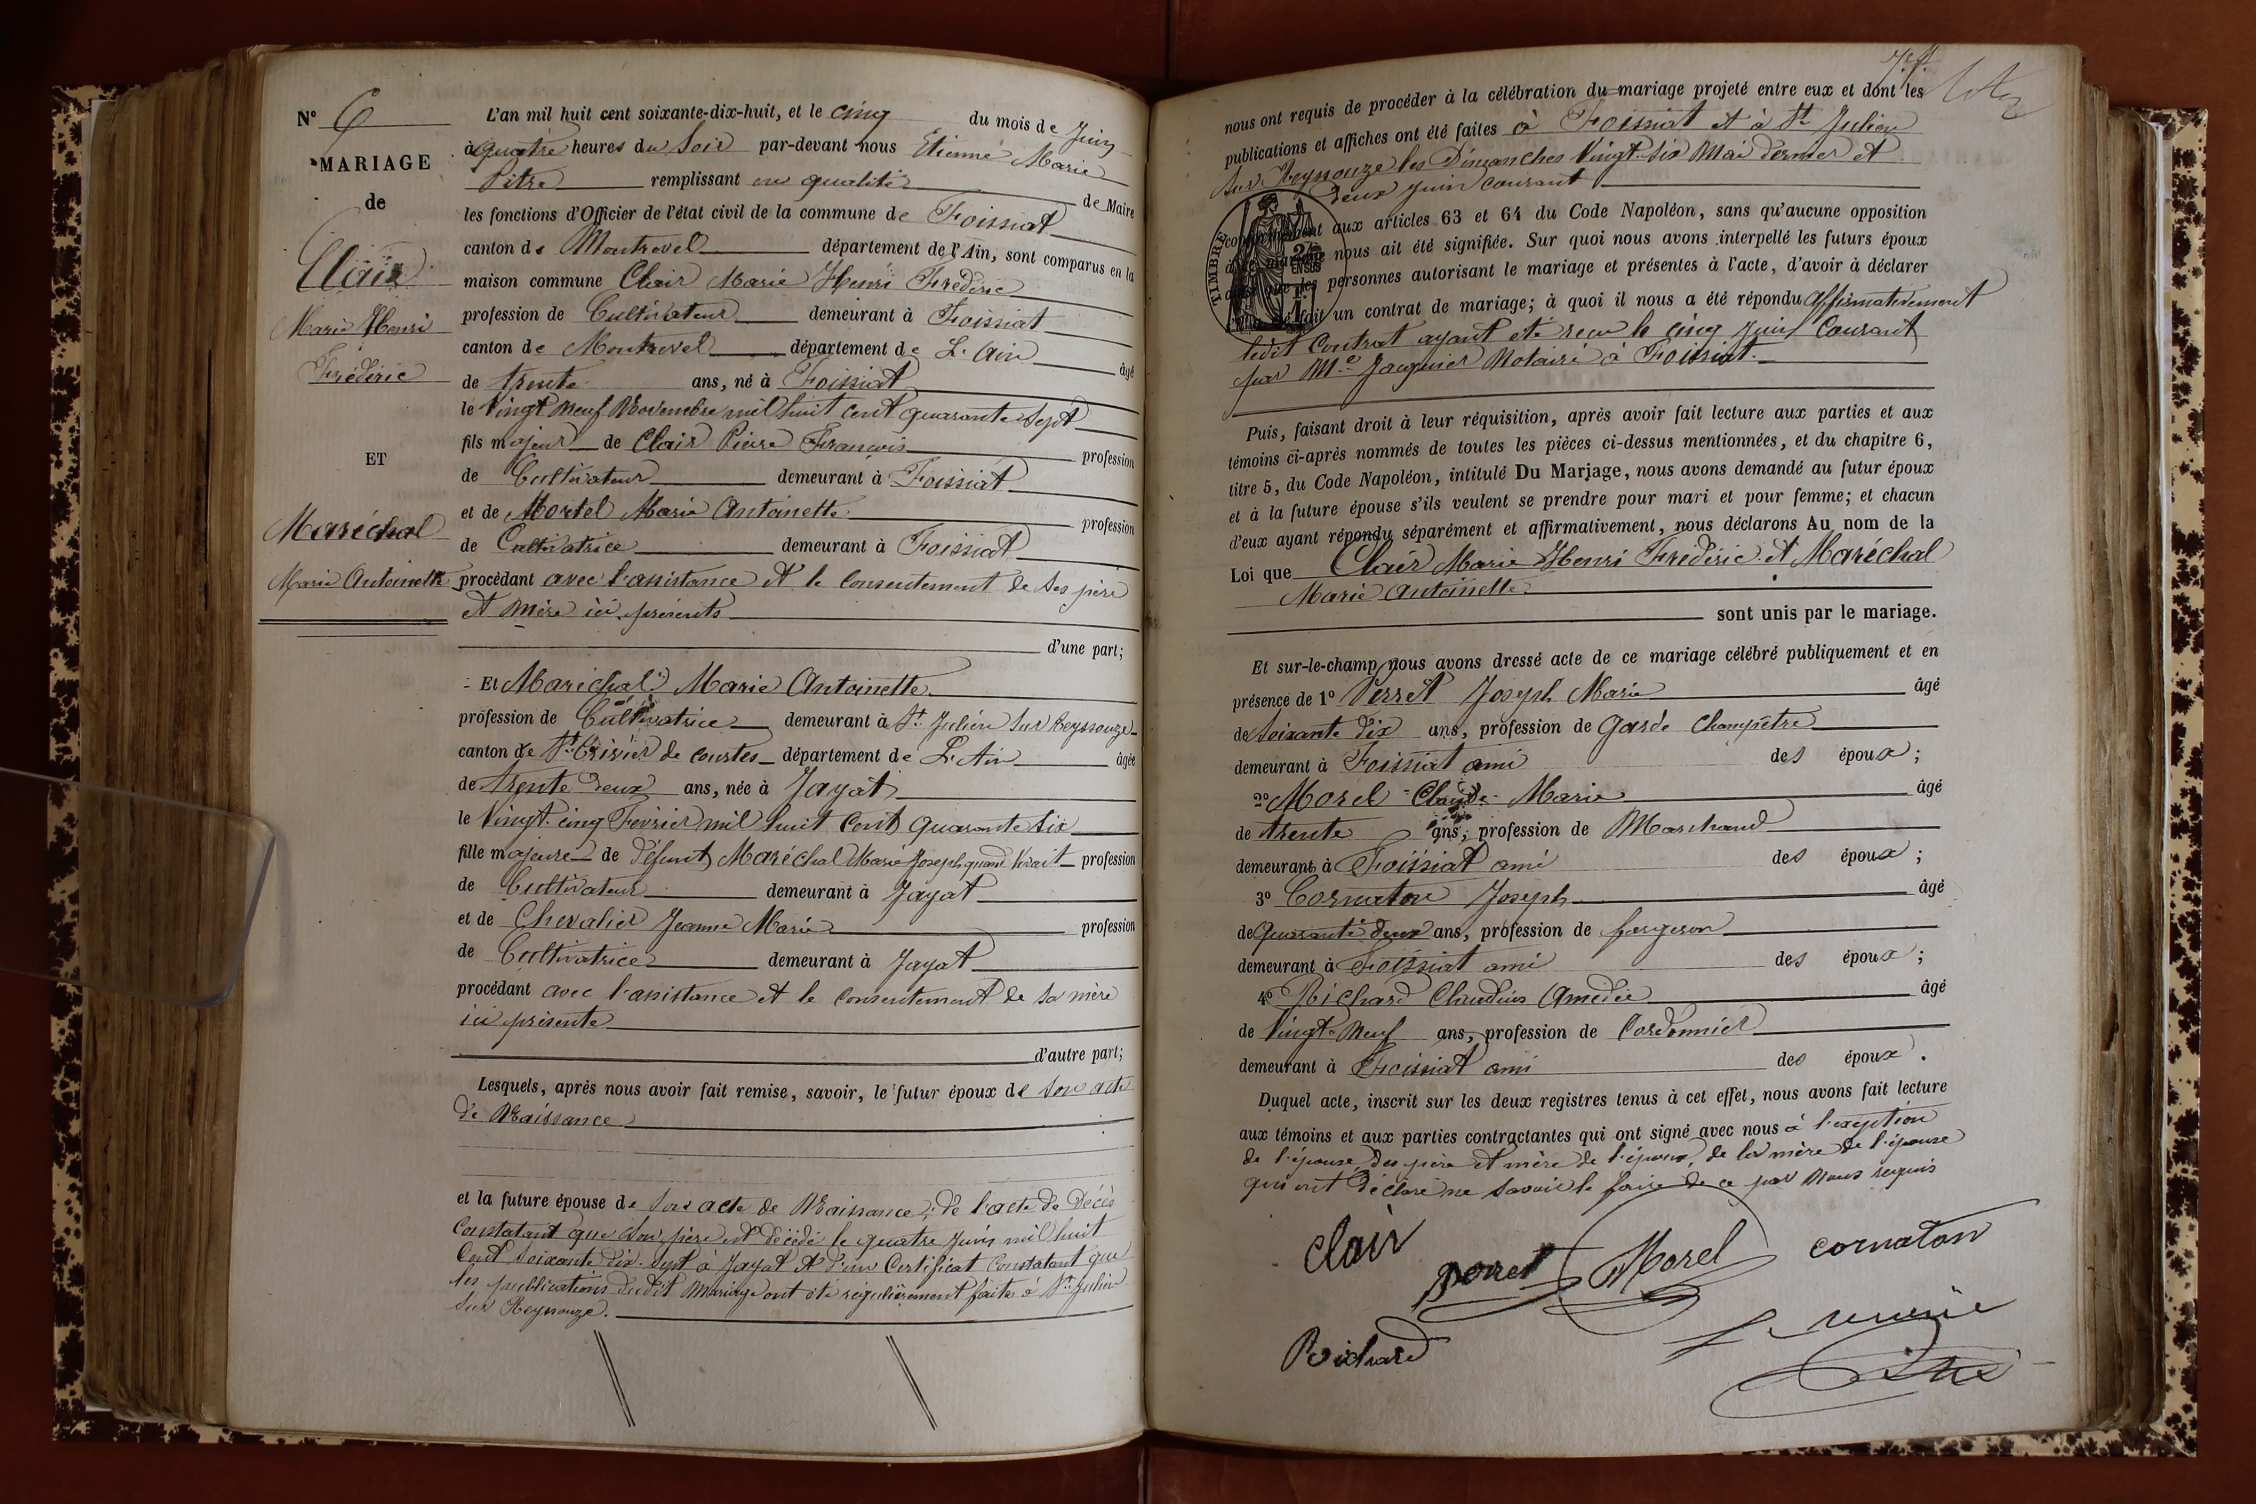 N° 6
MARIAGE
de
Clair
Marie Henri
Fréderic
ET
Maréchal
Marie Antoinette
L'an mil huit cent soixante-dix-huit, et le cinq du mois de Juin
à quatre heures du Soir par-devant nous Etienne Marie
Pitre remplissant en qualité de Maire
les fonctions d'Officier de l'état civil de la commune de Foissiat
canton de Montrevel département de l'Ain, sont comparus en la
maison commune Clair Marie Henri Fréderic
profession de Cultivateur demeurant à Foissiat
canton de Montrevel département de L'Ain âgé
de trente ans, né à Foissiat
le Vingt Neuf Novembre mil huit cent quarante Sept
fils majeur de Clair Pierre François profession
de Cultivateur demeurant à Foissiat
et de Mortel Marie Antoinette profession
de Cultivatrice demeurant à Foissiat
procédant avec l'assistance et le Consentement de ses père
et mère ici présents
d'une part;
Et Maréchal Marie Antoinette
profession de Cultivatrice demeurant à St Julien Sur Reyssouze
canton de St Trivier de Courtes département de L'Ain âgée
de trente deux ans, née à Jayat
le Vingt cinq Fevrier mil huit Cent quarante Six
fille majeure de défunt Maréchal Marie Joseph quand vivait profession
de Cultivateur demeurant à Jayat
et de Chevalier Jeanne Marie profession
de Cultivatrice demeurant à Jayat
procédant avec l'assistance et le Consentement de sa mère
ici présente
d'autre part;
Lesquels, après nous avoir fait remise, savoir, le futur époux de Son acte
de Naissance
et la future épouse de Son acte de Naissance, de l'acte de Décès
Constatant que Son père est décédé le quatre Juin mil huit
Cent Soixante Dix-Sept à Jayat et d'un Certificat Constatant que
les publications dudit Mariage ont été régulièrement faites à St Julien
Sur Reyssouze.
nous ont requis de procéder à la célébration du mariage projeté entre eux et dont les
publications et affiches ont été faites à Foissiat et à St Julien
Sur Reyssouze les Dimanches Vingt-Six Mai dernier et
deux Juin courant
TIMBRE
conformément aux articles 63 et 64 du Code Napoléon, sans qu'aucune opposition
à ce mariage nous ait été signifiée. Sur quoi nous avons interpellé les futurs époux
ainsi que les personnes autorisant le mariage et présentes à l'acte, d'avoir à déclarer
s'il a été fait un contrat de mariage; à quoi il nous a été répondu affirmativement
ledit Contrat ayant été reçu le cinq Juin Courant
par Me Jacquier Notaire à Foissiat.
Puis, faisant droit à leur réquisition, après avoir fait lecture aux parties et aux
témoins ci-après nommés de toutes les pièces ci-dessus mentionnées, et du chapitre 6,
titre 5, du Code Napoléon, intitulé Du Mariage, nous avons demandé au futur époux
et à la future épouse s'ils veulent se prendre pour mari et pour femme; et chacun
d'eux ayant répondu séparément et affirmativement, nous déclarons Au nom de la
Loi que Clair Marie Henri Fréderic et Maréchal
Marie Antoinette
sont unis par le mariage.
Et sur-le-champ nous avons dressé acte de ce mariage célébré publiquement et en
présence de 1° Perret Joseph Marie âgé
de Soixante dix ans, profession de Garde Champêtre
demeurant à Foissiat ami des époux;
2° Morel Claude Marie âgé
de trente ans, profession de Marchand
demeurant à Foissiat ami des époux;
3° Cornaton Joseph âgé
de Quarante deux ans, profession de forgeron
demeurant à Foissiat ami des époux;
4° Richard Claudius Amedée âgé
de Vingt Neuf ans, profession de Cordonnier
demeurant à Foissiat ami des époux.
Duquel acte, inscrit sur les deux registres tenus à cet effet, nous avons fait lecture
aux témoins et aux parties contractantes qui ont signé avec nous à l'exeption
de l'épouse, des père et mère de l'époux, de la mère de l'épouse
qui ont déclaré ne savoir le faire de ce par Nous requis
Clair
perret
Morel
cornaton
Richard
Le maire
Pitre